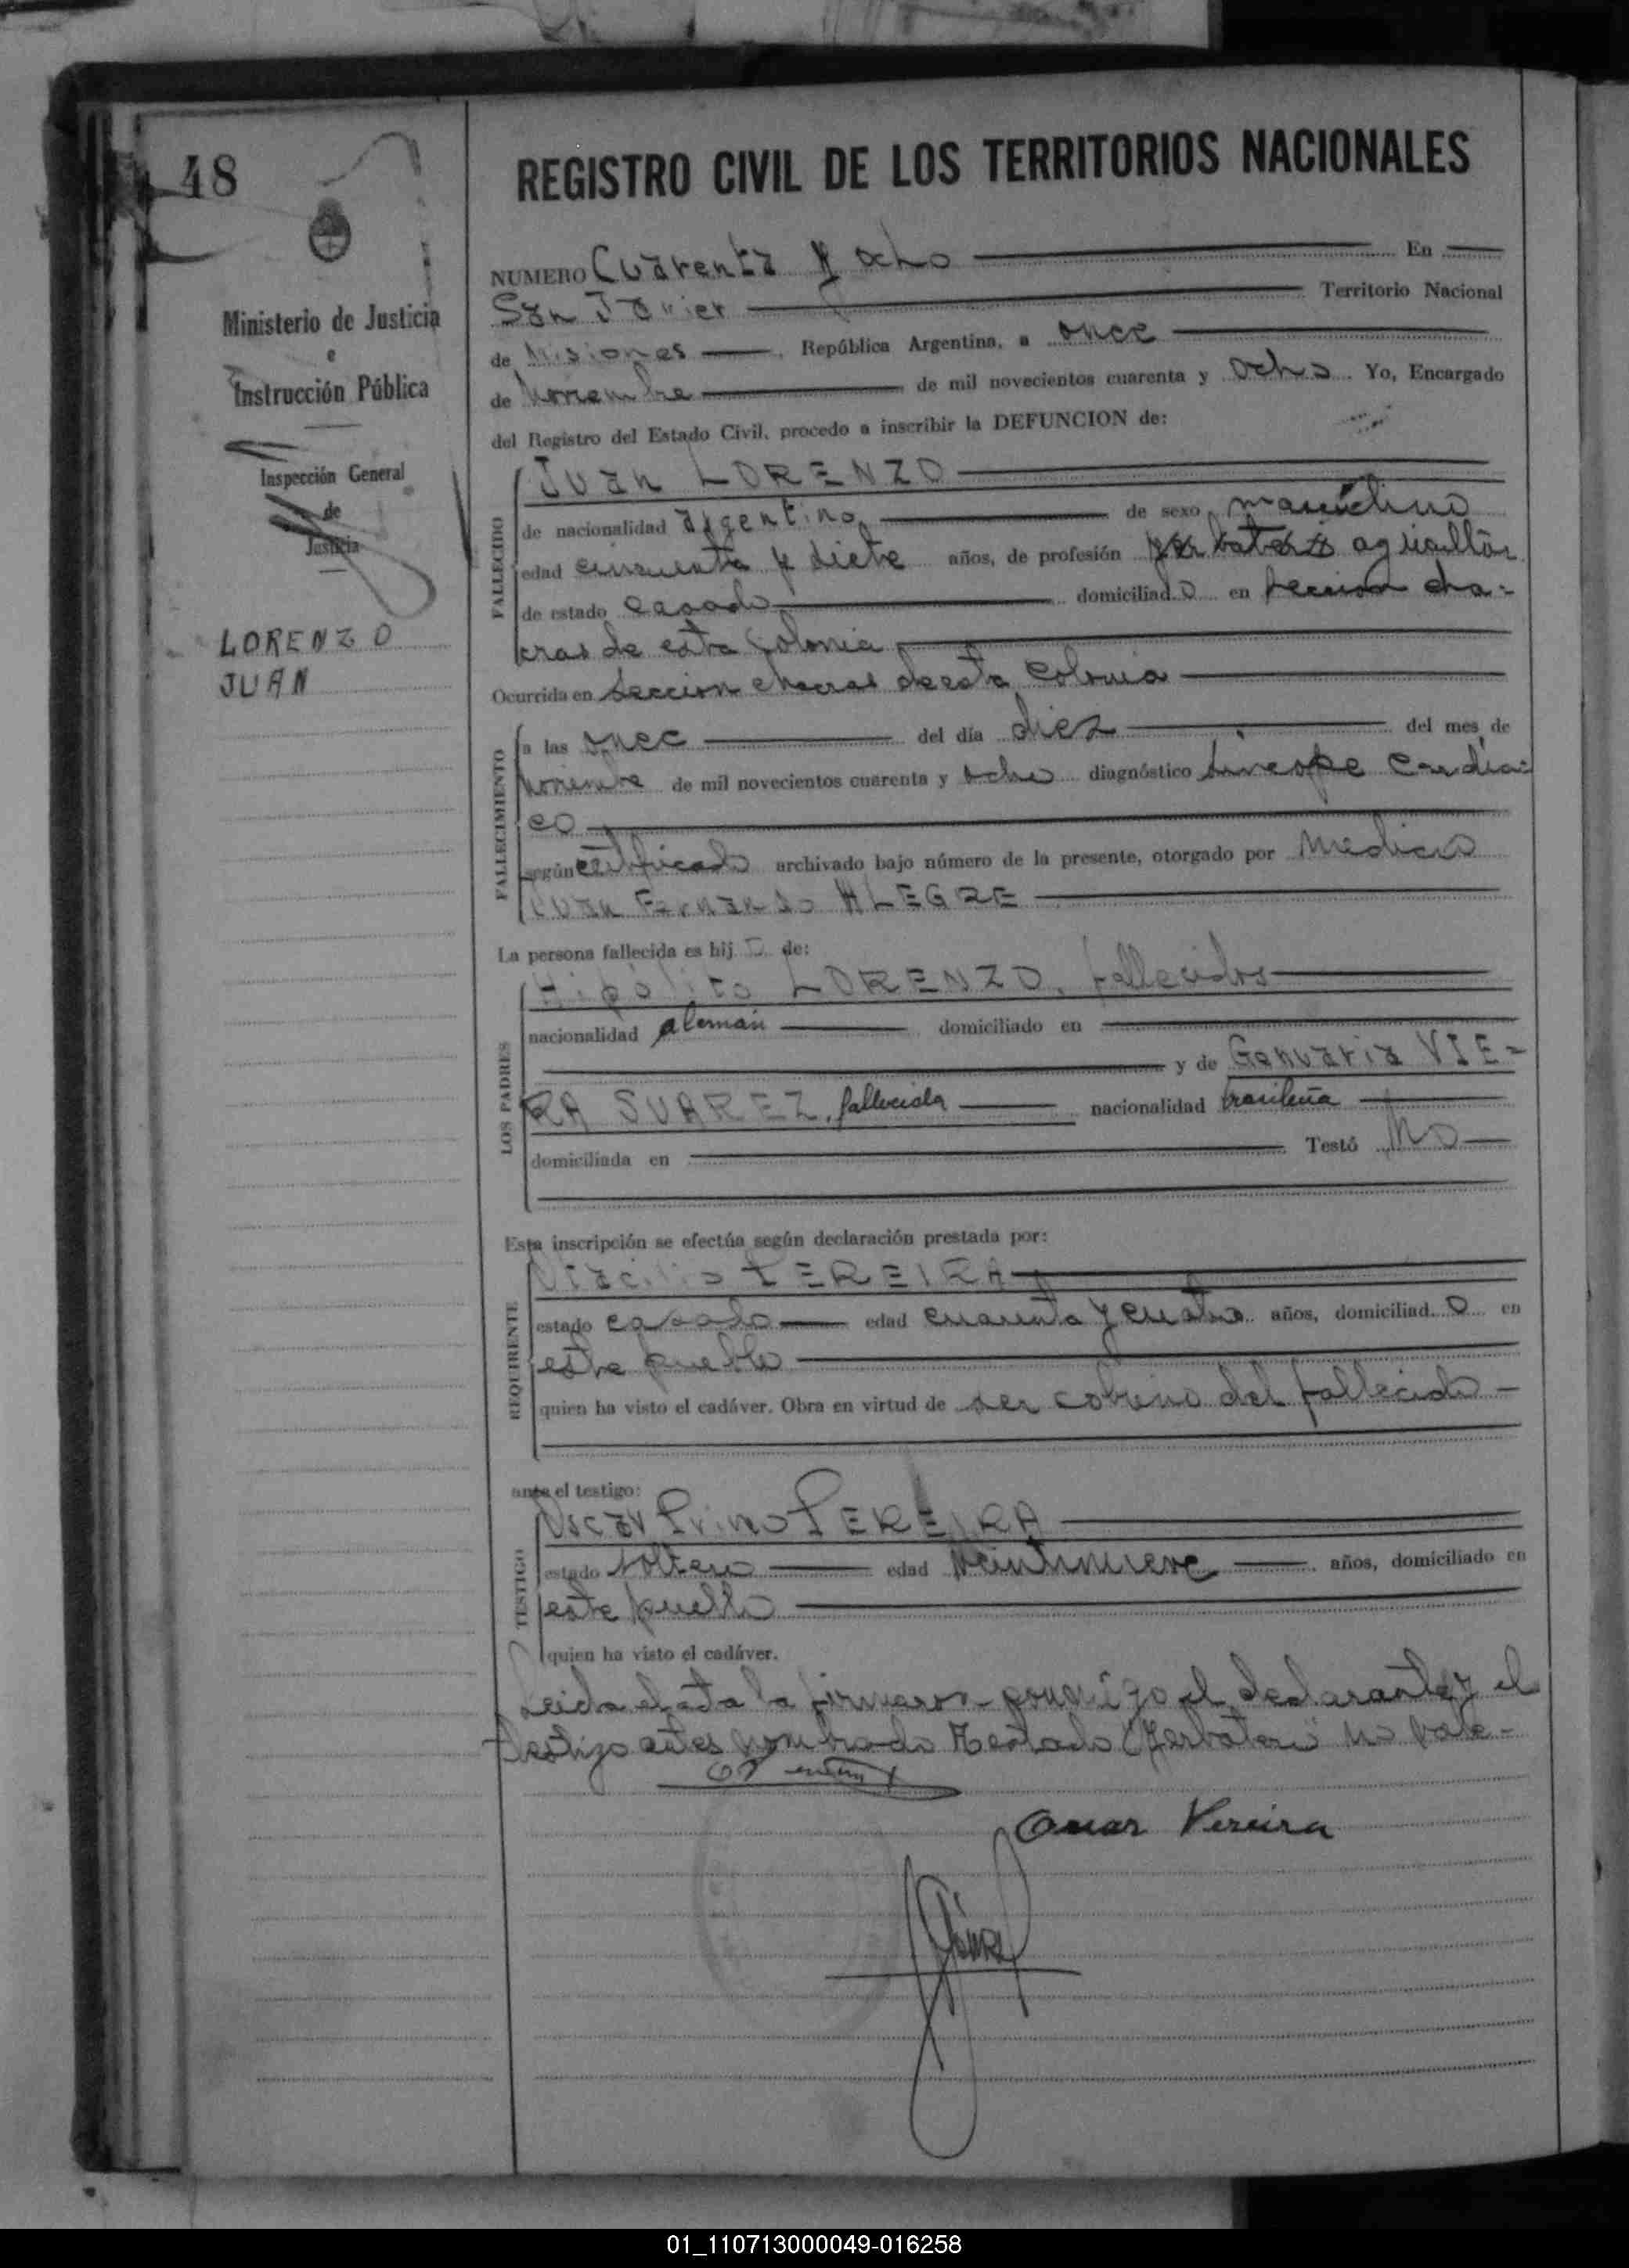 48
Ministerio de Justicia
e
Instrucción Pública
Inspección General
de
Justicia
LORENZO
JUAN
REGISTRO CIVIL DE LOS TERRITORIOS NACIONALES
NUMERO Cuarenta y ocho En
San Javier Territorio Nacional
de Misiones, República Argentina, a once
de Noviembre de mil novecientos cuarenta y ocho. Yo, Encargado
del Registro del Estado Civil, procedo a inscribir la DEFUNCION de:
FALLECIDO
Juan LORENZO
de nacionalidad argentino de sexo masculino
edad cincuenta y siete años, de profesión yerbatero agricultor
de estado casado domiciliado en sección cha-
cras de esta Colonia
Ocurrida en Sección chacras de esta Colonia
FALLECIMIENTO
a las once del día diez del mes de
Noviembre de mil novecientos cuarenta y ocho diagnóstico síncope cardía-
co
según certificado archivado bajo número de la presente, otorgado por Medico
Juan Fernando ALEGRE
La persona fallecida es hijo de:
LOS PADRES
Hipólito LORENZO, fallecidos
nacionalidad alemán domiciliado en
y de Genuaria VIE-
RA SUAREZ, fallecida nacionalidad brasileña
domiciliada en Testó No
Esta inscripción se efectúa según declaración prestada por:
REQUIRENTE
PEREIRA
estado casado edad cuarenta y cuatro años, domiciliado en
este pueblo
quien ha visto el cadáver. Obra en virtud de ser cobrino del fallecido
ante el testigo:
TESTIGO
Oscar Primo PEREIRA
estado soltero edad veintinueve años, domiciliado en
este pueblo
quien ha visto el cadáver.
Leida el acta la firmaron conmigo el declarante y el
testigo antes nombrado Testado "Yerbatero" no vale-
Omar Pereira
01_110713000049-016258